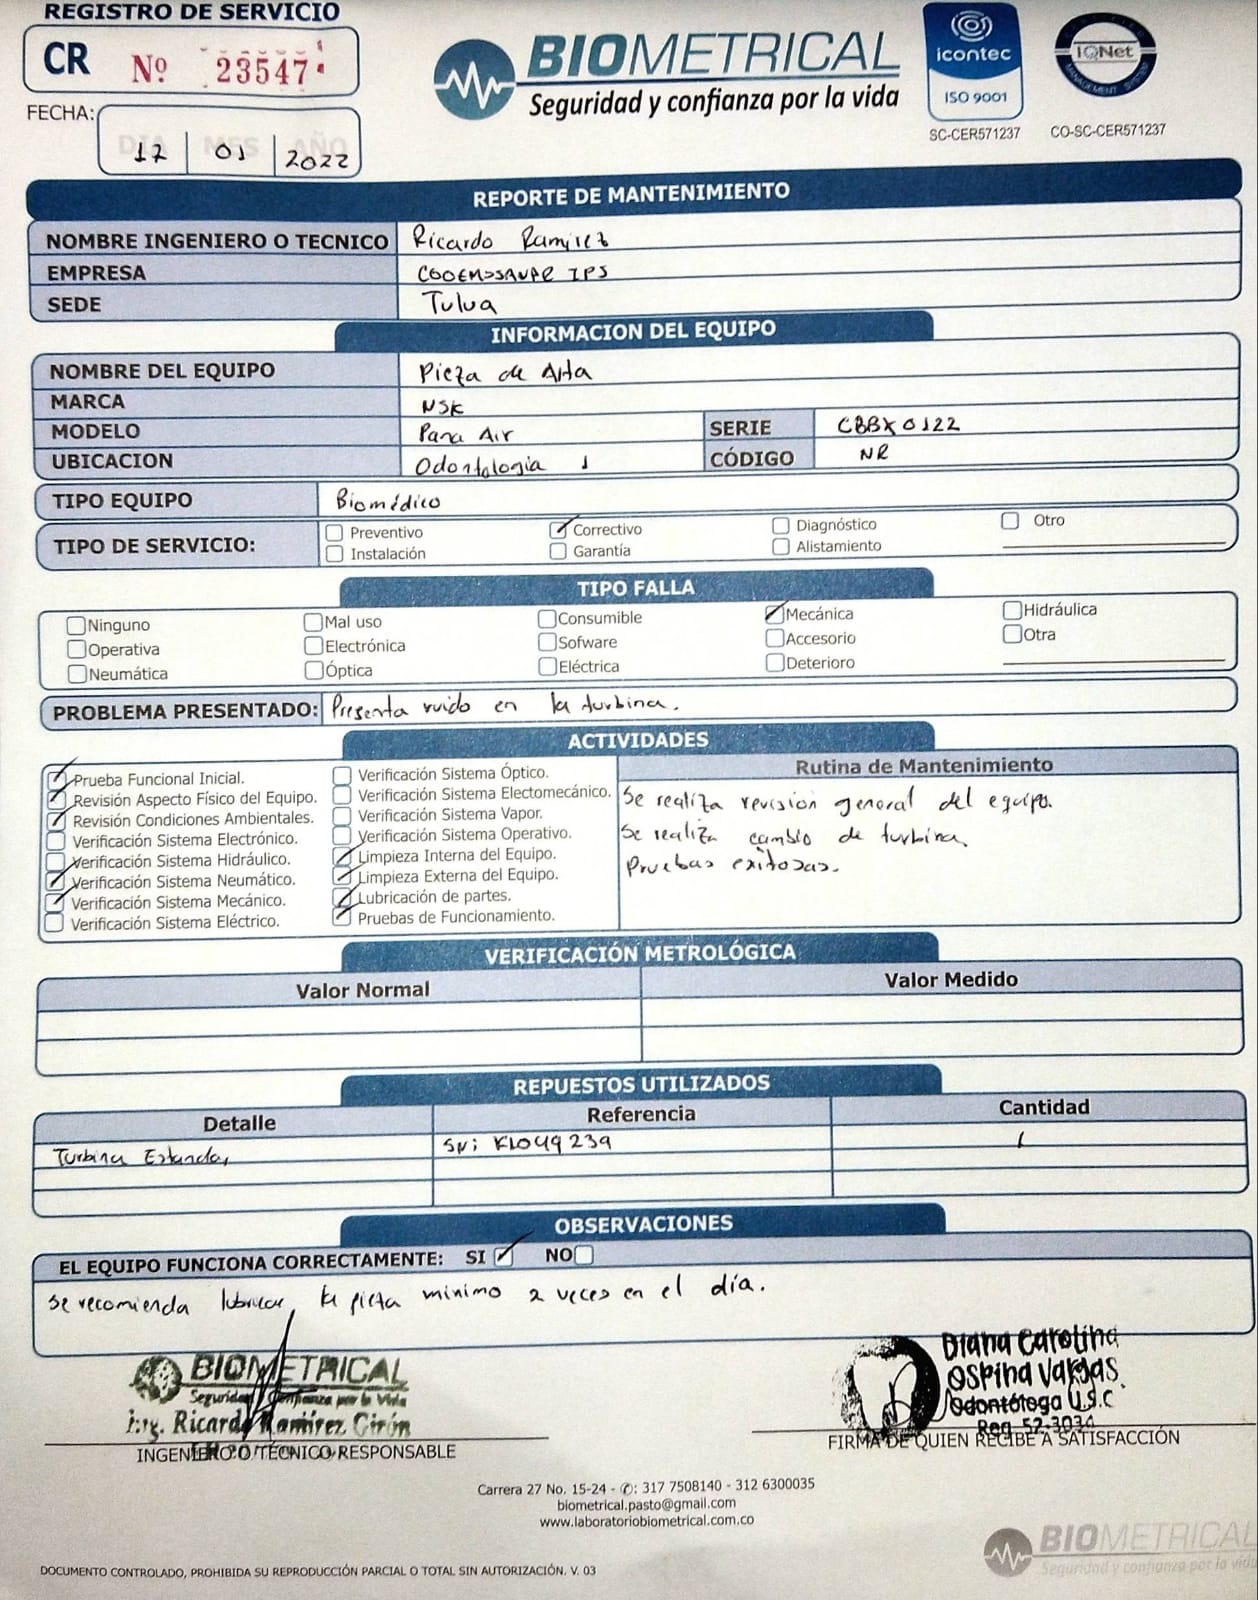 REGISTRO DE SERVICIO
CR Nº 23547
FECHA:
DIA MES AÑO
12 01 2022
BIOMETRICAL
Seguridad y confianza por la vida
icontec
ISO 9001
SC-CER571237
IQNet
MANAGEMENT SYSTEM
CO-SC-CER571237
REPORTE DE MANTENIMIENTO
NOMBRE INGENIERO O TECNICO Ricardo Ramirez
EMPRESA IPS
SEDE Tulua
INFORMACION DEL EQUIPO
NOMBRE DEL EQUIPO Pieza de Alta
MARCA NSK
MODELO Pana Air SERIE CBBX0122
UBICACION Odontologia 1 CÓDIGO NR
TIPO EQUIPO Biomédico
TIPO DE SERVICIO:
Preventivo Correctivo Diagnóstico Otro
Instalación Garantía Alistamiento
TIPO FALLA
Ninguno Mal uso Consumible Mecánica Hidráulica
Operativa Electrónica Sofware Accesorio Otra
Neumática Óptica Eléctrica Deterioro
PROBLEMA PRESENTADO: Presenta ruido en la turbina.
ACTIVIDADES
Prueba Funcional Inicial.
Revisión Aspecto Físico del Equipo.
Revisión Condiciones Ambientales.
Verificación Sistema Electrónico.
Verificación Sistema Hidráulico.
Verificación Sistema Neumático.
Verificación Sistema Mecánico.
Verificación Sistema Eléctrico.
Verificación Sistema Óptico.
Verificación Sistema Electomecánico.
Verificación Sistema Vapor.
Verificación Sistema Operativo.
Limpieza Interna del Equipo.
Limpieza Externa del Equipo.
Lubricación de partes.
Pruebas de Funcionamiento.
Rutina de Mantenimiento
Se realiza revisión general del equipo.
Se realiza cambio de turbina.
Pruebas exitosas.
VERIFICACIÓN METROLÓGICA
Valor Normal Valor Medido
REPUESTOS UTILIZADOS
Detalle Referencia Cantidad
Turbina Estandar SN: KL049239 1
OBSERVACIONES
EL EQUIPO FUNCIONA CORRECTAMENTE: SI NO
Se recomienda lubricar la pieza minimo 2 veces en el día.
BIOMETRICAL
Seguridad y Confianza por la Vida
Ing. Ricardo Ramírez Girón
INGENIERO O TÉCNICO RESPONSABLE
Diana Carolina
Ospina Vargas
Odontóloga U.S.C.
Reg 52-3034
FIRMA DE QUIEN RECIBE A SATISFACCIÓN
Carrera 27 No. 15-24 - ✆: 317 7508140 - 312 6300035
biometrical.pasto@gmail.com
www.laboratoriobiometrical.com.co
BIOMETRICAL
Seguridad y confianza por la vida
DOCUMENTO CONTROLADO, PROHIBIDA SU REPRODUCCIÓN PARCIAL O TOTAL SIN AUTORIZACIÓN. V. 03